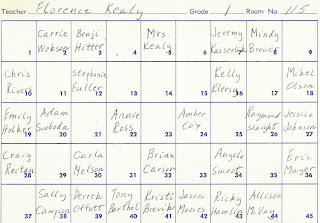 Teacher Florence Kealy Grade 1 Room No. 115
Carrie Benji Mrs. Jeremy Mindy
Wobser Hitter Kealy Brower
1 2 3 4 5 6 7 8 9
Chris Stephanie Kelly Mikel
Rivers Fuller Klersy Olson
10 11 12 13 14 15 16 17 18
Emily Adam Annie Amber Raymond Jessica
Holker Svoboda Ross Coy Slaight Johnson
19 20 21 22 23 24 25 26 27
Craig Carla Brian Angela Eric
Rectan Nelson Carson Smoot Mayer
28 29 30 31 32 33 34 35 36
Sally Derrek Tony Kristi Jason Ricky Allison
Campion Offutt Barthel Brevik Moores Hamlin McVay
37 38 39 40 41 42 43 44 45